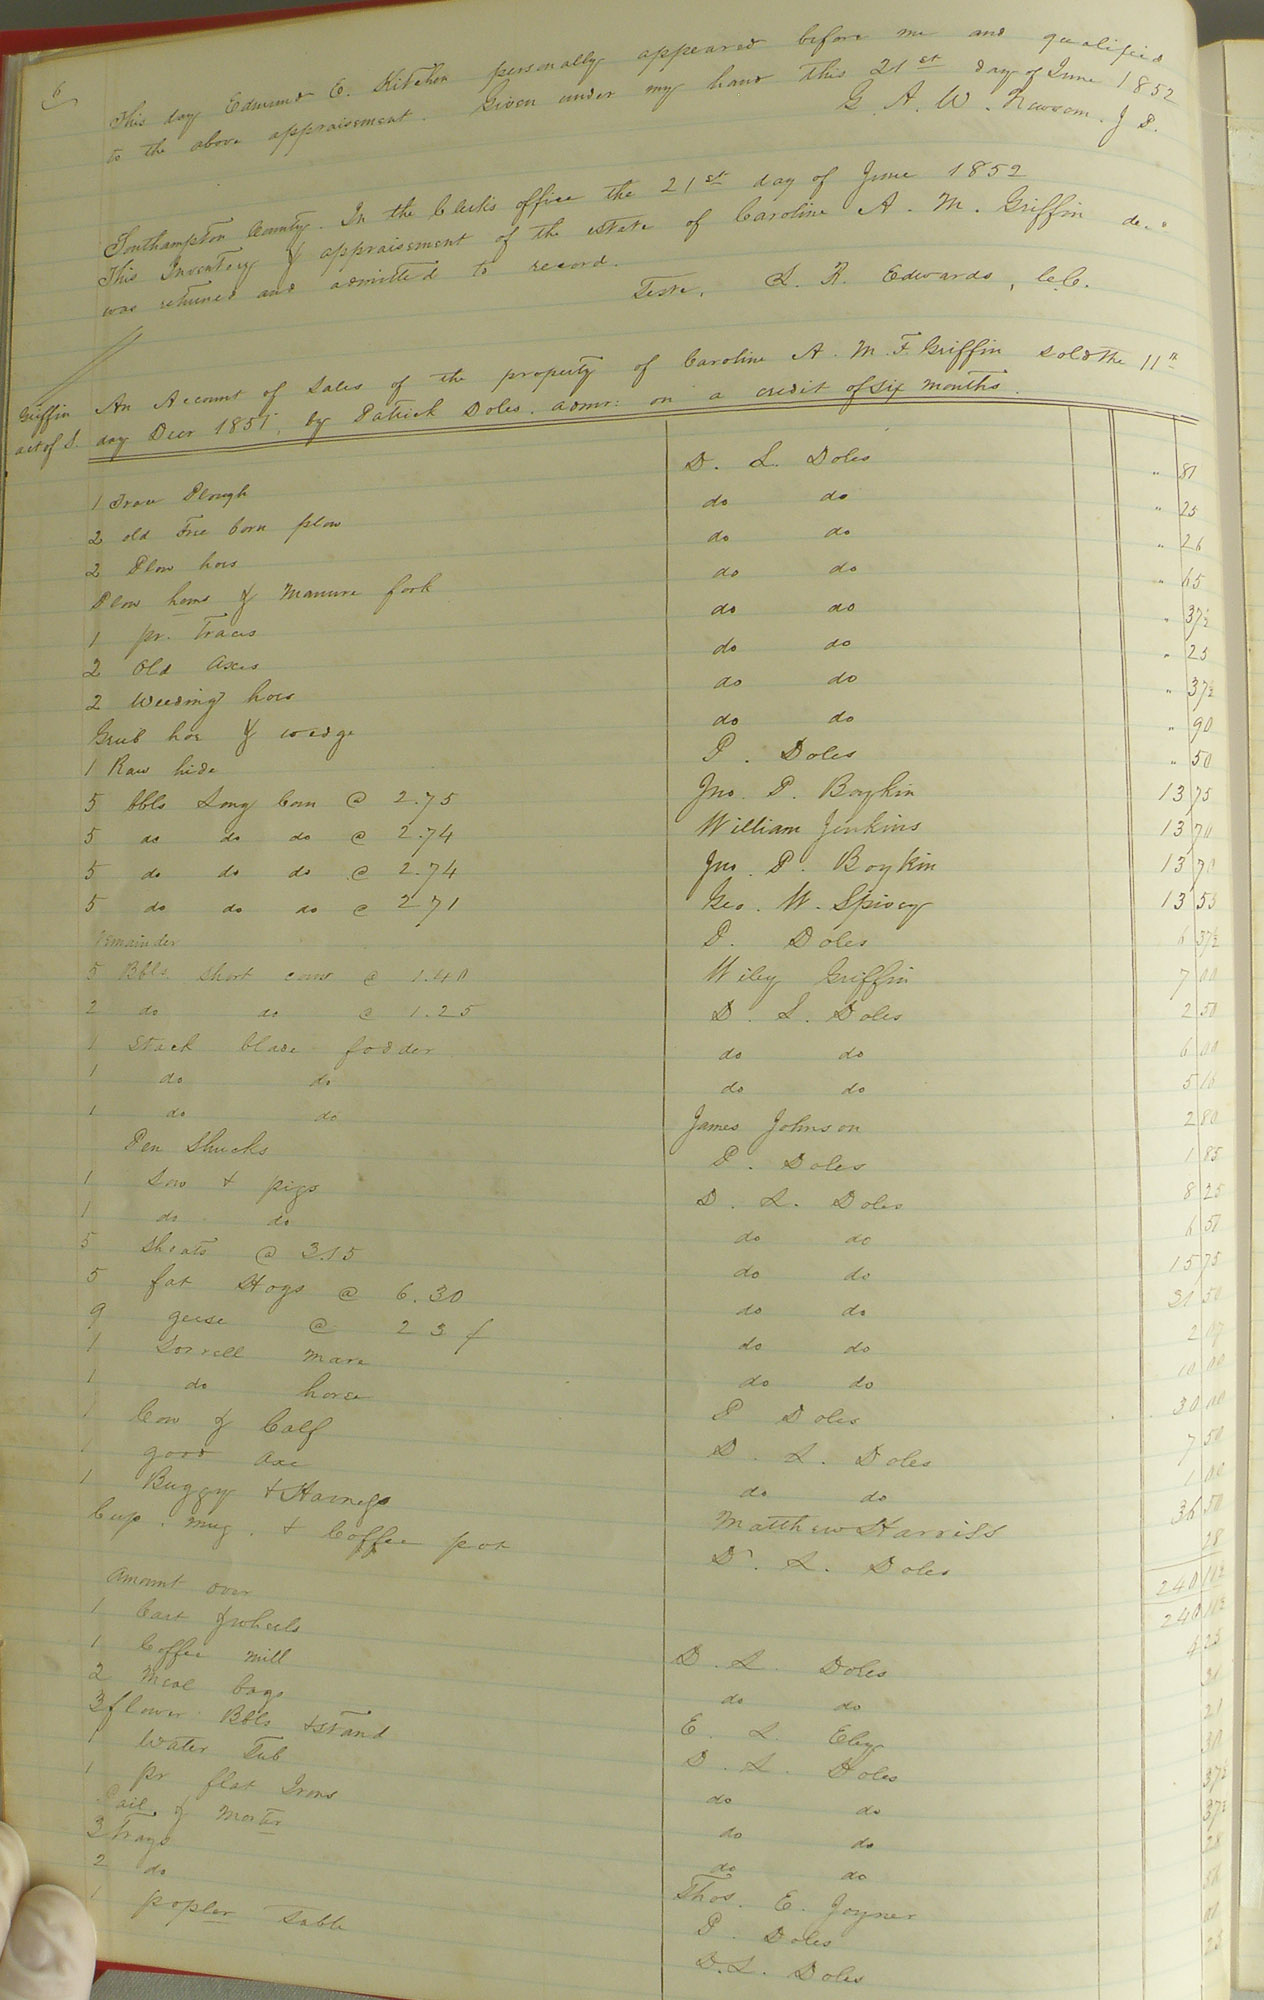 6
This day Edmund E. Kitchen personally appeared before me and qualified
to the above appraisement. Given under my hand this 21st day of June 1852
G. A. W. Newsom. J P.
Southampton County. In the Clerks office the 21st day of June 1852
This Inventory & appraisement of the estate of Caroline A. M. Griffin dec.
was returned and admitted to record.
Teste, L. R. Edwards, C.C.
Griffin
act of S.
An Account of Sales of the property of Caroline A. M. F. Griffin sold the 11th
day Decr 1851, by Patrick Doles. admr: on a credit of six months.
1 Trace Plough D. L. Doles " 81
2 old Free born plow do do " 25
2 Plow hoes do do " 26
Plow hems & Manure fork do do " 65
1 pr. Traces do do " 37½
2 Old Axes do do " 25
2 Weeding hoes do do " 37½
Grub hoe & wedge do do " 90
1 Raw hide P. Doles " 50
5 bbls Long Corn @ 2.75 Jno. P. Boykin 13 75
5 do do do @ 2.74 William Jenkins 13 70
5 do do do @ 2.74 Jno. P. Boykin 13 70
5 do do do @ 2 71 Geo. W. Spivey 13 55
remainder P. Doles 6 37½
5 Bbls. short corn @ 1.40 Wiley Griffin 7 00
2 do do @ 1.25 D. L. Doles 2 50
1 Stack blade fodder do do 6 00
1 do do do do 5 16
1 do do James Johnson 2 80
Pen Shucks P. Doles 1 85
1 Sow + pigs D. L. Doles 8 25
1 do do do do 6 50
5 Shoats @ 3.15 do do 15 75
5 fat Hogs @ 6.30 do do 31 50
9 geese @ 23 do do 2 07
1 Sorrell mare do do 10 00
1 do horse P Doles 30 00
1 Cow & Calf D. L. Doles 7 50
1 good axe do do 1 00
1 Buggy + Harness Matthew Harriss 36 50
Cup. mug. + Coffee pot D. L. Doles 28
240
Amount over 240
1 Cart & wheels D. L. Doles 4 25
1 Coffee mill do do
2 Meal bags E. L. Eley 21
3 flower Bbls + stand D. L. Doles 30
1 Water Tub do do 37½
1 pr flat Irons do do 37½
Pail & Morter do do
3 Trays Thos. E. Joyner
2 do P. Doles
1 popler Table D. L. Doles